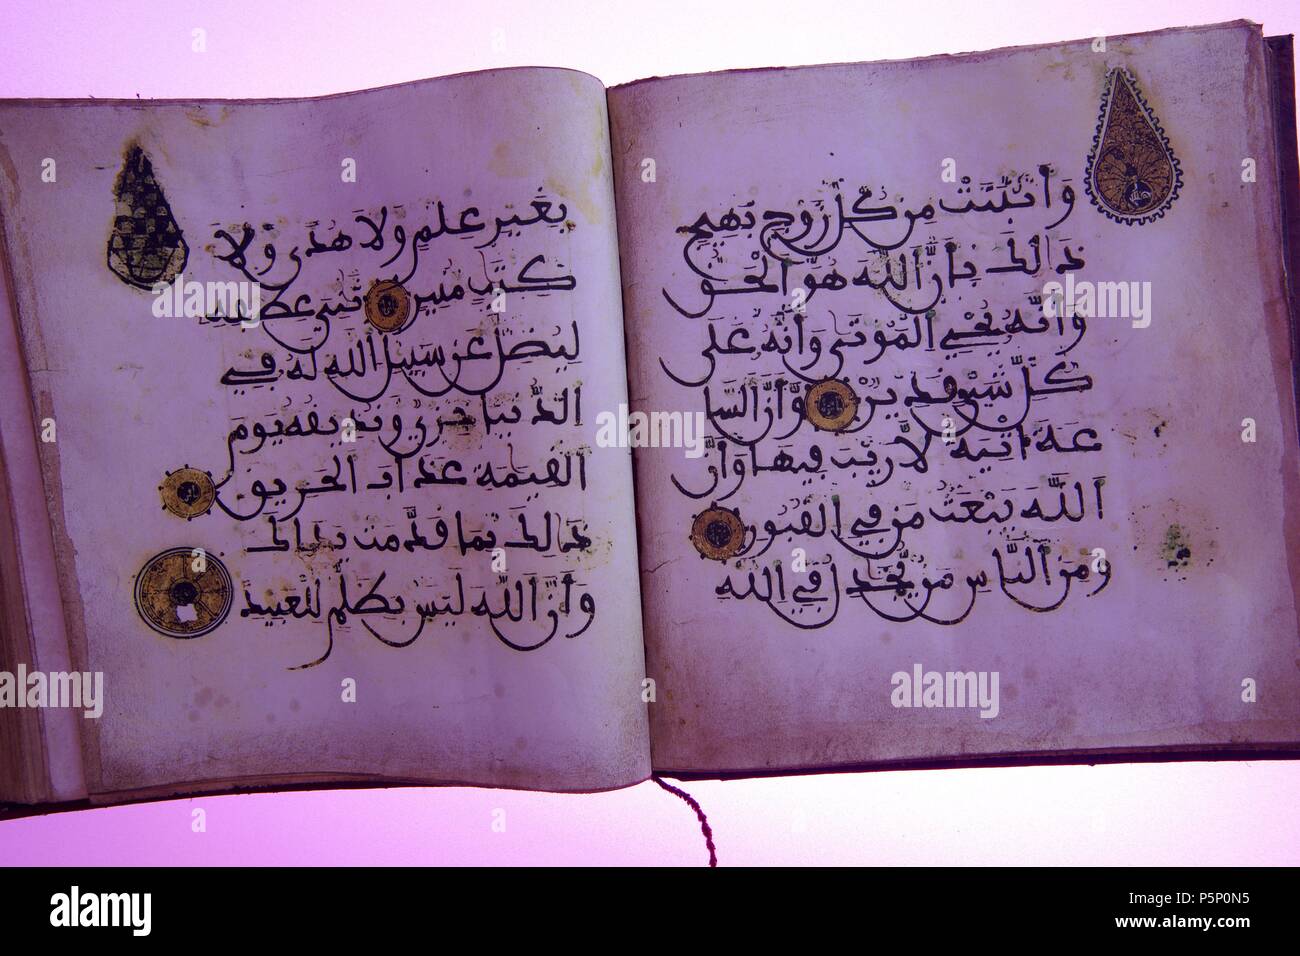 وَأَنبَتَتْ مِن كُلِّ زَوْجٍ بَهِيجٍ
ذَٰلِكَ بِأَنَّ اللَّهَ هُوَ الْحَقُّ
وَأَنَّهُ يُحْيِ الْمَوْتَىٰ وَأَنَّهُ عَلَىٰ
كُلِّ شَيْءٍ قَدِيرٌ وَأَنَّ السَّا
عَةَ ءَاتِيَةٌ لَّا رَيْبَ فِيهَا وَأَنَّ
اللَّهَ يَبْعَثُ مَن فِي الْقُبُورِ
وَمِنَ النَّاسِ مَن يُجَٰدِلُ فِي اللَّهِ
بِغَيْرِ عِلْمٍ وَلَا هُدًى وَلَا
كِتَٰبٍ مُّنِيرٍ ثَانِيَ عِطْفِهِ
لِيُضِلَّ عَن سَبِيلِ اللَّهِ لَهُ فِي
الدُّنْيَا خِزْيٌ وَنُذِيقُهُ يَوْمَ
الْقِيَٰمَةِ عَذَابَ الْحَرِيقِ
ذَٰلِكَ بِمَا قَدَّمَتْ يَدَاكَ
وَأَنَّ اللَّهَ لَيْسَ بِظَلَّٰمٍ لِّلْعَبِيدِ
alamy
alamy
alamy
alamy
Image ID: P5P0N5
www.alamy.com